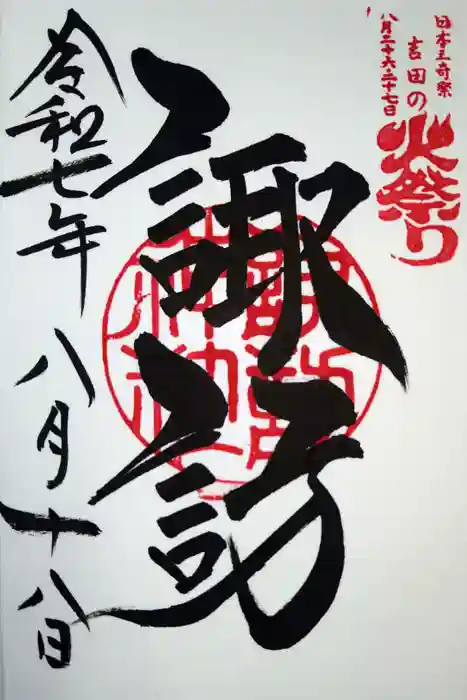 日本三奇祭
吉田の
火祭り
八月二十六、二十七日
諏訪
諏訪神社
令和七年 八月十八日